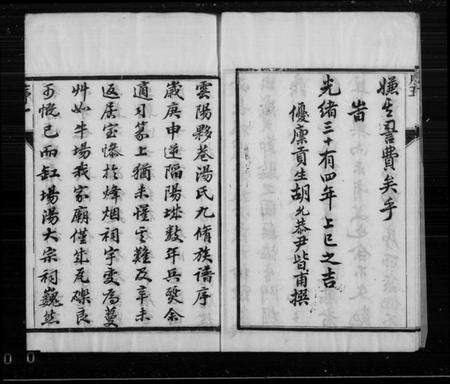 嫌生訾費矣乎
峕
光緒三十有四年上巳之吉
優廩貢生胡允恭尹皆甫撰
雲陽夥巷湯氏九脩族譜序
歲庚申逆陷陽城數年兵燹余
適習篆上猶未罹其難及辛未
返居室慘於烽烟祠宇變為蔓
艸牛場我家廟僅外瓦礫良
可慨已而缸場湯大宗祠巍然